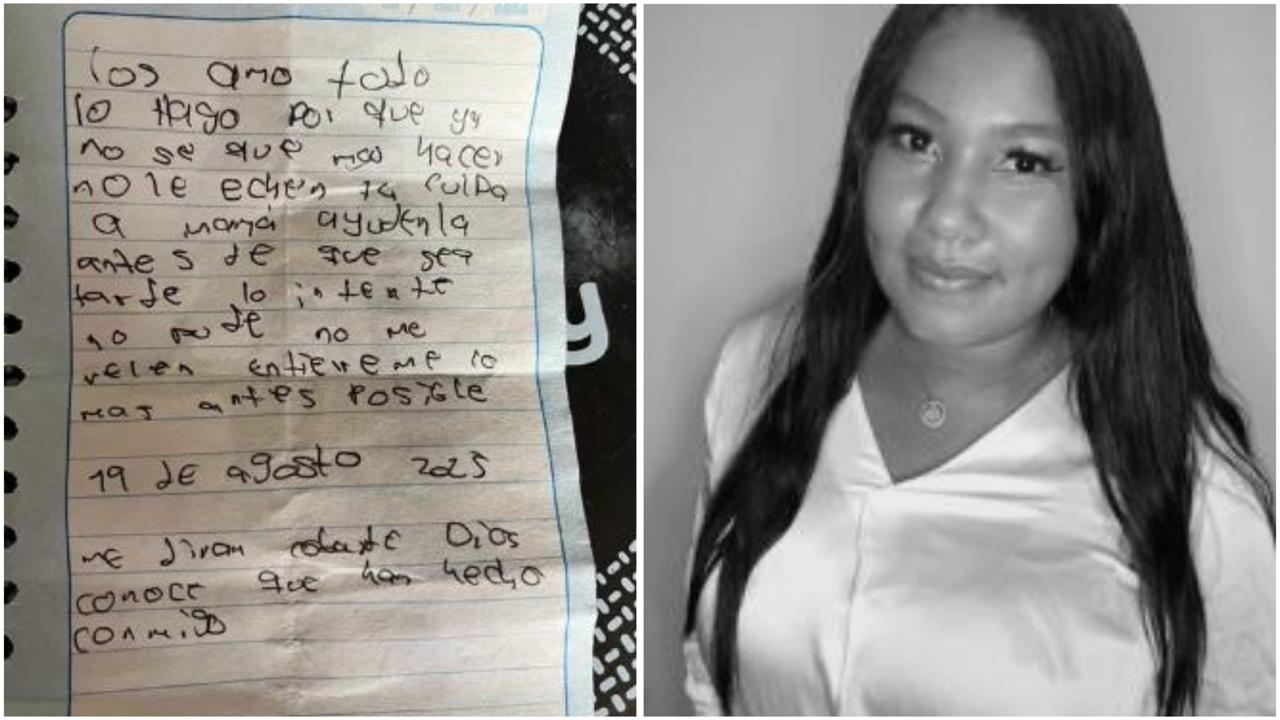 los amo todo
lo Hago por que ya
no se que mas hacer
no le echen la culpa
a mamá ayudenla
antes de que sea
tarde lo intente
no pude no me
velen entiereme lo
mas antes posible
19 de agosto 2025
me diran cobarde Dios
conoce que han hecho
conmigo
y